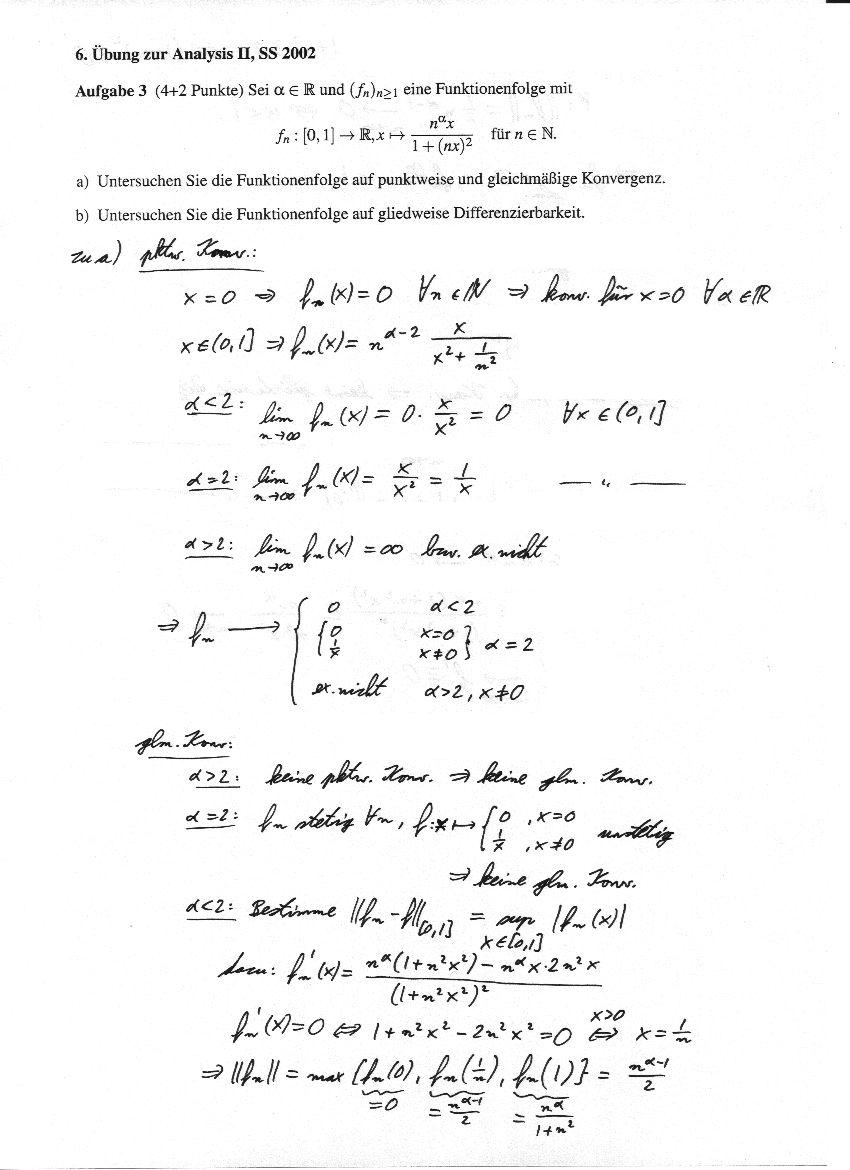 6. Übung zur Analysis II, SS 2002
Aufgabe 3 (4+2 Punkte) Sei α ∈ ℝ und (fₙ)ₙ≥₁ eine Funktionenfolge mit
fₙ : [0, 1] → ℝ, x ↦ n^α x / (1 + (nx)²) für n ∈ ℕ.
a) Untersuchen Sie die Funktionenfolge auf punktweise und gleichmäßige Konvergenz.
b) Untersuchen Sie die Funktionenfolge auf gliedweise Differenzierbarkeit.
zu a) pktw. Konv.:
x = 0 ⇒ fₙ(x) = 0 ∀n ∈ ℕ ⇒ konv. für x=0 ∀α ∈ ℝ
x ∈ (0,1] ⇒ fₙ(x) = n^(α-2) x / (x² + 1/n²)
α<2: lim n→∞ fₙ(x) = 0 · x/x² = 0 ∀x ∈ (0,1]
α=2: lim n→∞ fₙ(x) = x/x² = 1/x — " —
α>2: lim n→∞ fₙ(x) = ∞ bzw. ex. nicht
⇒ fₙ → { 0 α<2
{ 0 x=0
1/x x≠0 } α=2
ex. nicht α>2, x≠0
glm. Konv:
α>2: keine pktw. Konv. ⇒ keine glm. Konv.
α=2: fₙ stetig ∀n, f: x ↦ { 0 , x=0
1/x , x≠0 unstetig
⇒ keine glm. Konv.
α<2: Bestimme ||fₙ - f||[0,1] = sup x∈[0,1] |fₙ(x)|
dazu: fₙ'(x) = (n^α(1+n²x²) - n^α x·2n²x) / (1+n²x²)²
fₙ'(x)=0 ⇔ 1+n²x² - 2n²x² = 0 ⇔ (x>0) x = 1/n
⇒ ||fₙ|| = max {fₙ(0), fₙ(1/n), fₙ(1)} = n^(α-1)/2
=0 = n^(α-1)/2 = n^α/(1+n²)